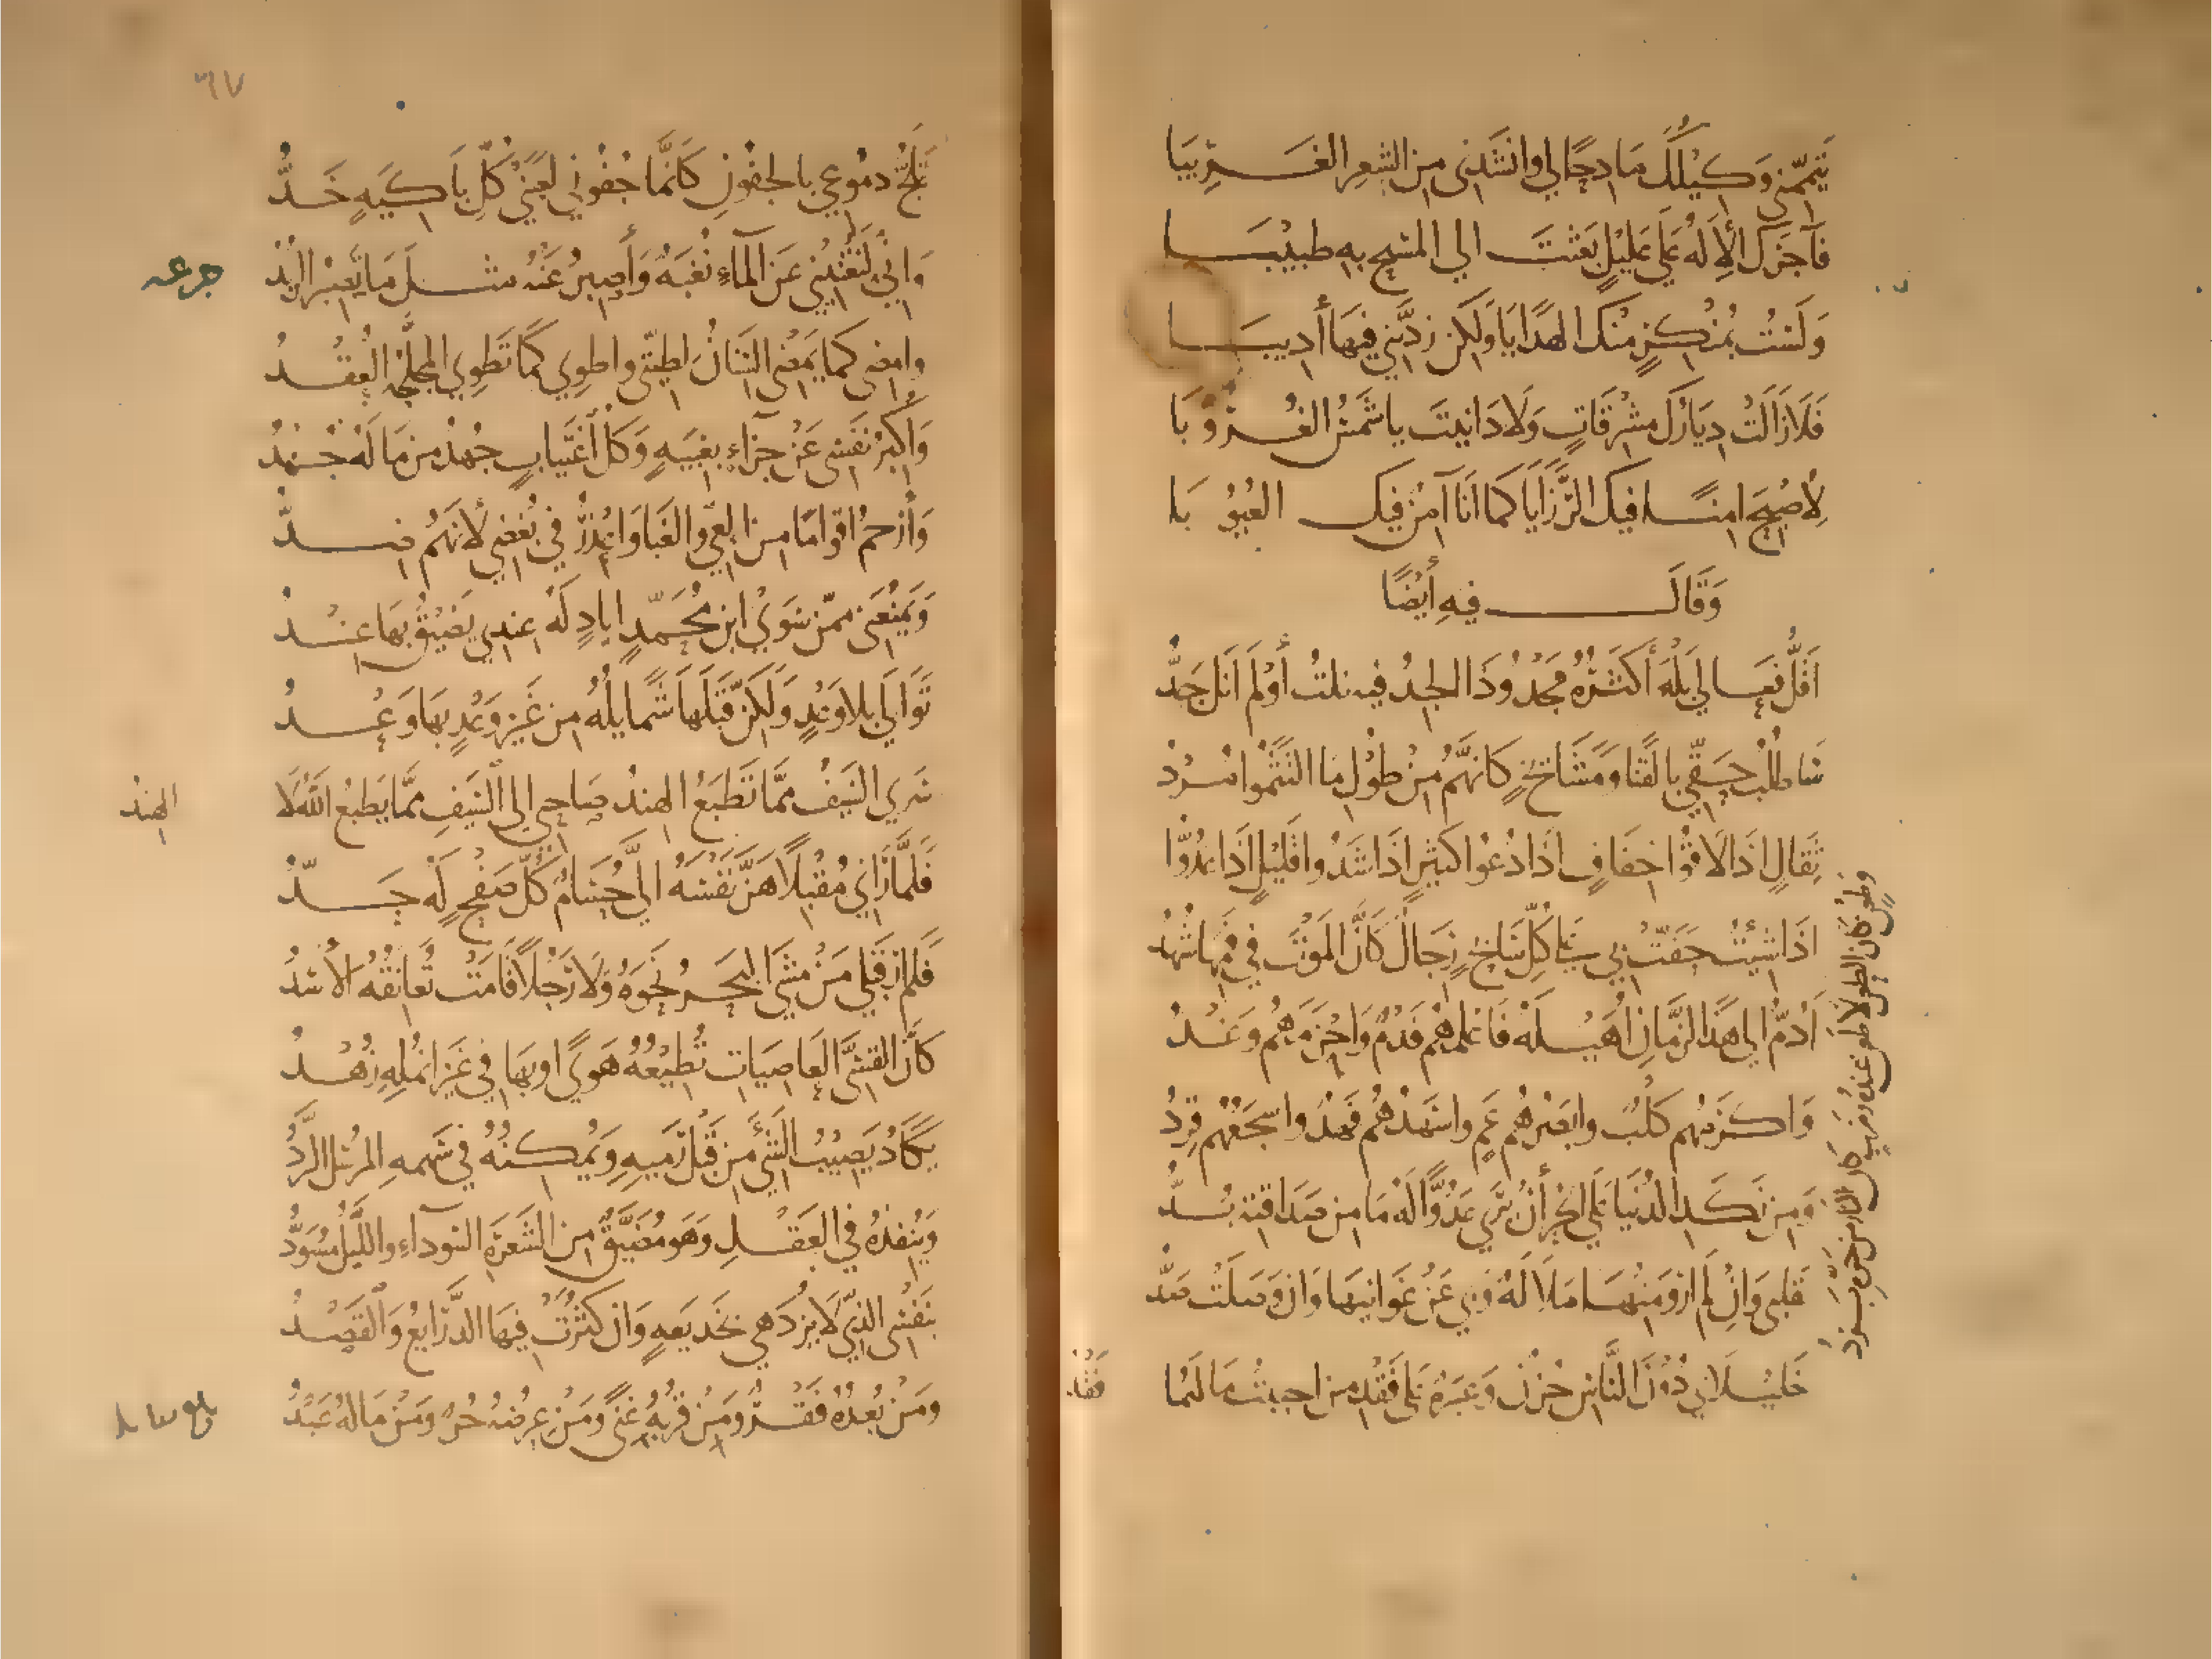 تَيَمَّمَني وَكيلُكَ مَادِحًا لي وانشَدَني مِنَ الشِعرِ الغَرِيبَا
فَآجَرَكَ الإِلَهُ عَلَى عَلِيلٍ بَعَثتَ الي المَسِيحِ بِهِ طَبيبَا
وَلَستُ بِمُنكِرٍ مِنكَ الهَدَايَا وَلَكِن زِدتَني فيهَا أَدِيبَا
فَلَا زَالَت دِيَارُكَ مُشرِقَاتٍ وَلَا دَانَيتَ يا شَمسُ الغُرُوبَا
لِأُصبِحَ امِنًا فيكَ الرَّزَايَا كَمَا أنَا آمِنٌ فيكَ العُيُوبَا
وَقَالَ فِيهِ أَيضًا
أقَلُّ فَعَالي بَلهَ أَكثَرَهُ مَجدُ وَذَا الجِدُّ فيهِ نلتُ أَو لَم أنَل جَدُّ
سَاطلُبُ حَقّي بالقَنَا وَمَشَائِخٍ كَانَّهُم مِن طُولِ مَا التَثَمُوا مُردُ
ثِقَالٍ اذَا لَاقَوا خِفَافٍ اذَا دُعُوا كثيرٍ اذَا شَدُّوا قَليلٍ اذَا عُدُّوا
وَطَعنٍ كَانَّ الطعنَ لا طَعنَ عِندَهُ وَضَربٍ كَانَّ النَّارَ مِن حَرِّهِ بَردُ
اذَا شِئتُ حَفَّت بي عَلَى كُلِّ سَابِحٍ رِجَالٌ كَانَّ المَوتَ في فَمِهَا شَهدُ
أَذُمُّ الي هَذَا الزَّمَانِ أُهَيلَهُ فَاعلَمُهُم فَدمٌ وَاحزَمُهُم وَغدُ
وَاكرَمُهُم كَلبٌ وابصَرُهُم عَمٍ واسهَدُهُم فَهدٌ واشجَعُهُم قِردُ
وَمِن نَكَدِ الدُنيَا عَلَي الحُرِّ أَن يَرَي عَدُوًّا لَهُ مَا مِن صَدَاقَتِهِ بُدُّ
بِقَلبي وَان لَم اروَ مِنهَا مَلَالَةٌ وَبي عَن غَوَانِيهَا وَان وَصَلَت صَدُّ
خَليلَايَ دُونَ النَّاسِ حُزنٌ وَعَبرَةٌ عَلَى فَقدِ مَن احببتُ مَا لَهُمَا
فَقدُ
٦٧
تَلَجُّ دمُوعي بالجفُونِ كَانَّمَا جُفُوني لِعَيني كُلِّ بَاكِيَةٍ خَدُّ
وَاِنّي لَتُغنِيني عَنِ المَآءِ نُغبَةٌ وَأَصبِرُ عَنهُ مثلَ مَا تَصبِرُ الرُبدُ
جرعه
وامضِي كمَا يَمضي السِنَانُ لِطِيَّتي واطوِي كَمَا تَطوِي المُجَلِّحَةُ العُقدُ
وَأُكبِرُ نَفسي عَن جَزَاءٍ بِغِيبَةٍ وَكُلُّ اغتِيَابٍ جُهدُ مَن مَا لَهُ جُهدُ
وَأَرحَمُ اقوَامًا مِنَ العِيِّ والغَبَا وَاعذِرُ في بُغضي لأَنَّهُمُ ضِدُّ
وَيَمنَعُني مِمَّن سِوَي ابنِ مُحَمَّدٍ ايَادٍ لَهُ عِندِي يَضيقُ بِهَا عِندُ
تَوَالَى بِلَا وَعدٍ وَلَكِنَّ قَبلَهَا شَمَايلُهُ مِن غَيرِ وَعدٍ بِهَا وَعدُ
سَرَي السَيفُ مِمَّا تَطبَعُ الهِندُ صَاحِبي اِلى السَّيفِ مِمَّا يَطبَعُ اللهُ لَا
الهندُ
فَلَمَّا رَاني مُقبِلًا هَزَّ نَفسَهُ الَيَّ حُسَامٌ كُلُّ صَفحٍ لَه حَدُّ
فَلَم ارَ قَبلي مَن مَشَى البَحرُ نَحوَهُ وَلَا رَجُلًا قَامَت تُعَانِقُهُ الأُسدُ
كَانَّ القِسِيَّ العَاصِيَاتِ تُطِيعُهُ هَوًي او بِهَا في غَيرِ انمُلِهِ زُهدُ
يَكَادُ يُصِيبُ الشَّئَ مِن قَبلِ رَميِهِ وَيُمكِنُهُ في سَهمِهِ المُرسَلِ الرَّدُّ
وَيُنفِذُهُ في العَقدِ وَهوَ مُضَيَّقٌ مِنَ الشَعرَةِ السَودَآءِ واللَّيلُ مُسوَدُّ
بِنَفسي الذِي لَا يُزدَهي بِخَديعَةٍ وَان كَثُرَت فِيهَا الذَّرَايِعُ وَالقَصدُ
وَمَن بُعدُهُ فَقرٌ وَمَن قُربُهُ غِنًى وَمَن عِرضُهُ حُرٌّ وَمَن مَالُهُ عَبدُ